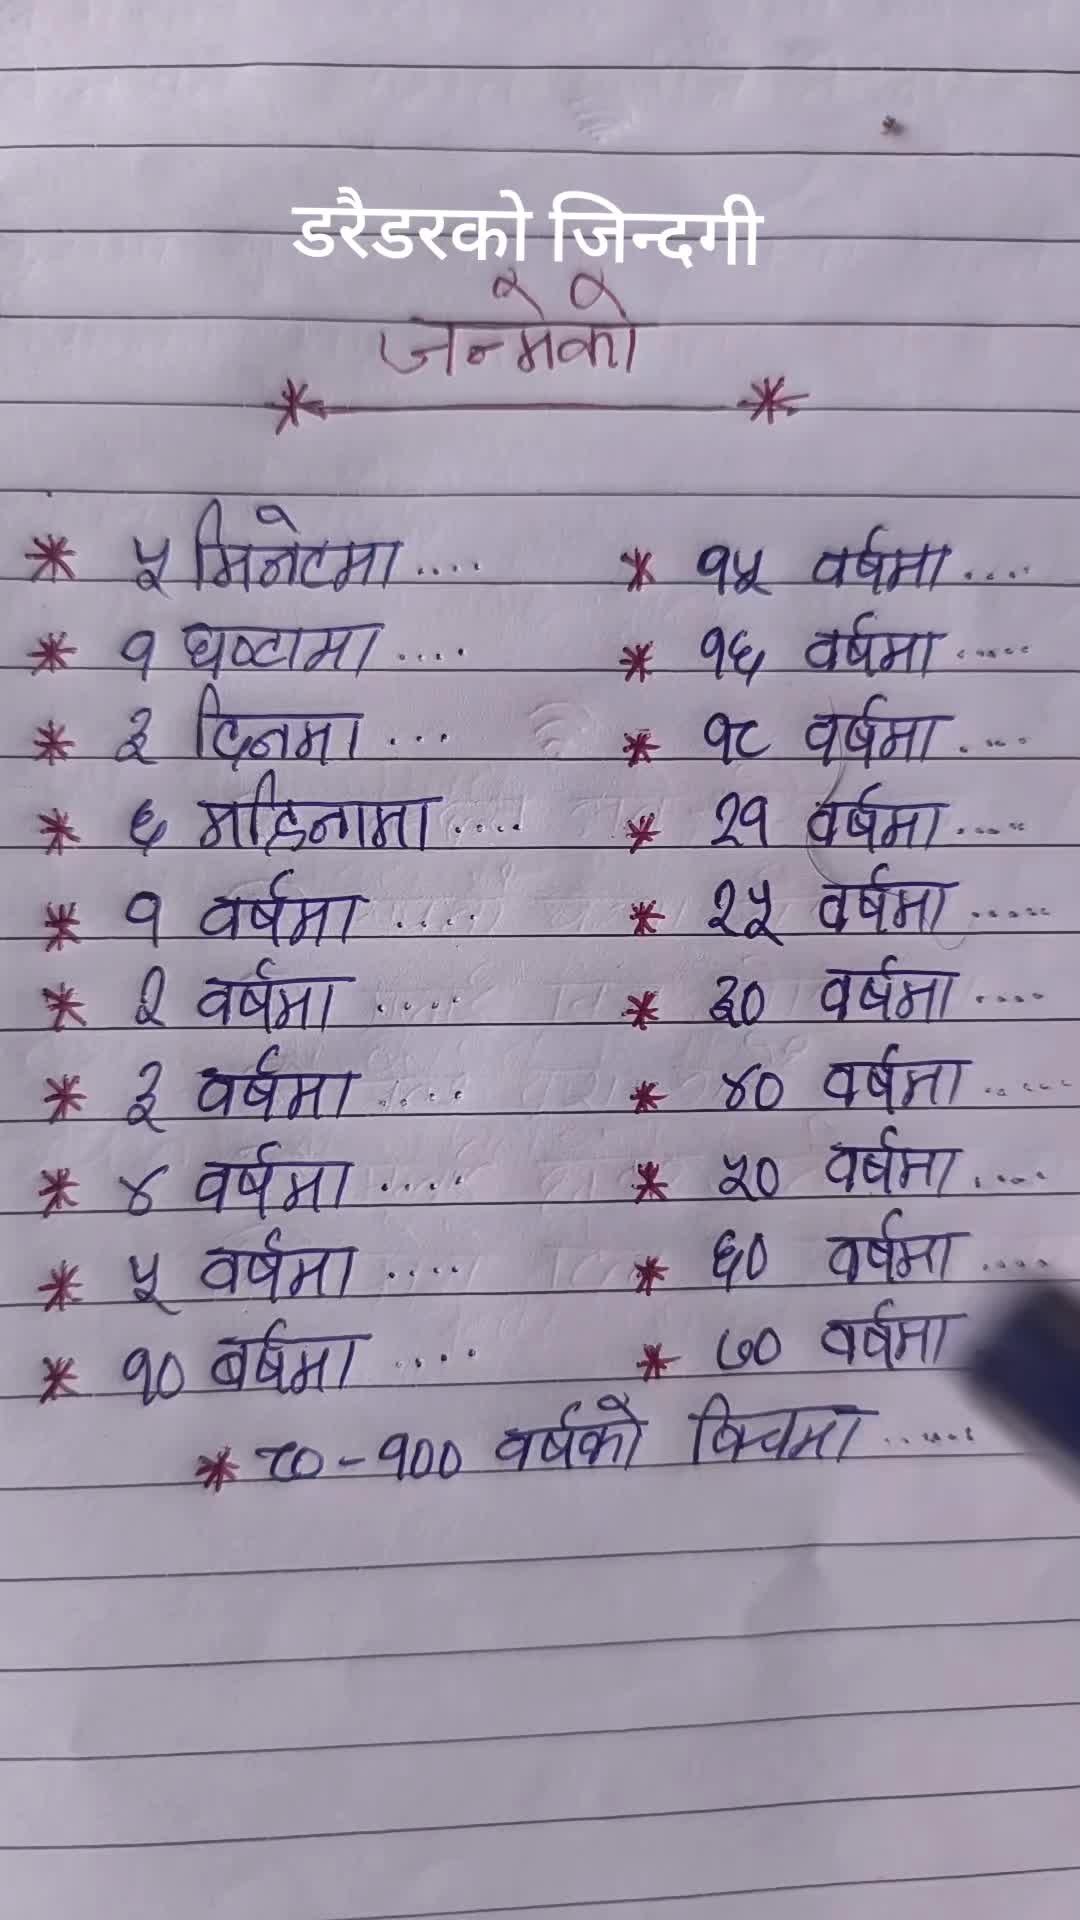 डरैडरको जिन्दगी
जन्मेको
* ५ मिनेटमा ....
* १ घण्टामा ....
* ३ दिनमा ...
* ६ महिनामा ....
* १ वर्षमा ....
* २ वर्षमा ....
* ३ वर्षमा ....
* ४ वर्षमा ....
* ५ वर्षमा ....
* १० बर्षमा ....
* १५ वर्षमा ....
* १६ वर्षमा .....
* १८ वर्षमा ....
* २१ वर्षमा .....
* २५ वर्षमा .....
* ३० वर्षमा ....
* ४० वर्षमा .....
* ५० वर्षमा ....
* ६० वर्षमा ....
* ७० वर्षमा
* ८०-१०० वर्षको बिचमा ......